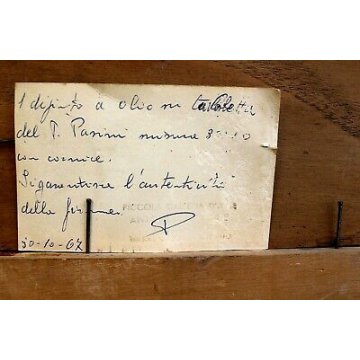 1 dipinto a olio su tavoletta
del P. Pasini misura
con cornice.
Si garantisce l'autenticità
della firma
PICCOLA
30-10-67